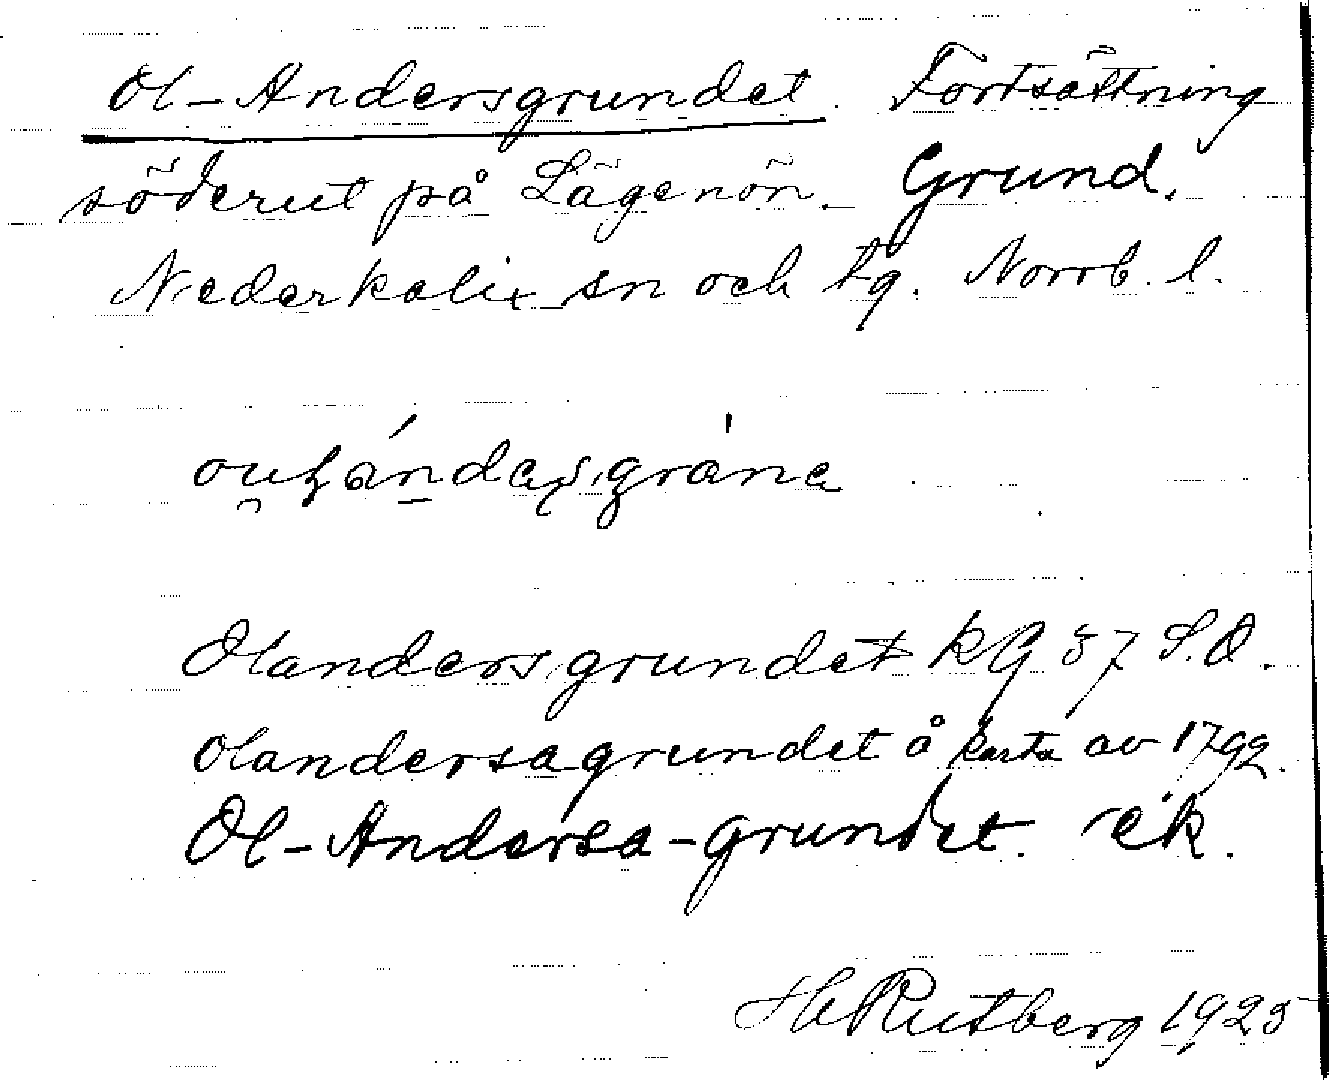 Ol-Andersgrundet. Fortsättning
söderut på Lägenön. Grund.
Nederkalix sn och tg. Norrb. l.
Olandersgrundet KG 87 S.O.
Olandersagrundet å karta av 1792.
Ol-Andersa-grundet. ek.
H Rutberg 1925